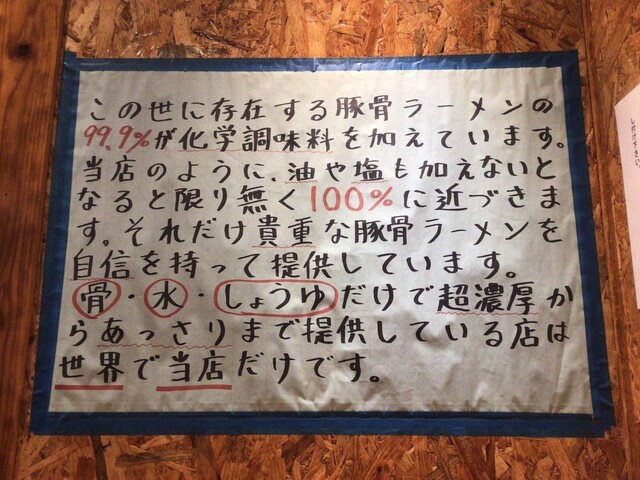 この世に存在する豚骨ラーメンの
99.9%が化学調味料を加えています。
当店のように、油や塩も加えないと
なると限り無く100%に近づきま
す。それだけ貴重な豚骨ラーメンを
自信を持って提供しています。
骨・水・しょうゆだけで超濃厚か
らあっさりまで提供している店は
世界で当店だけです。